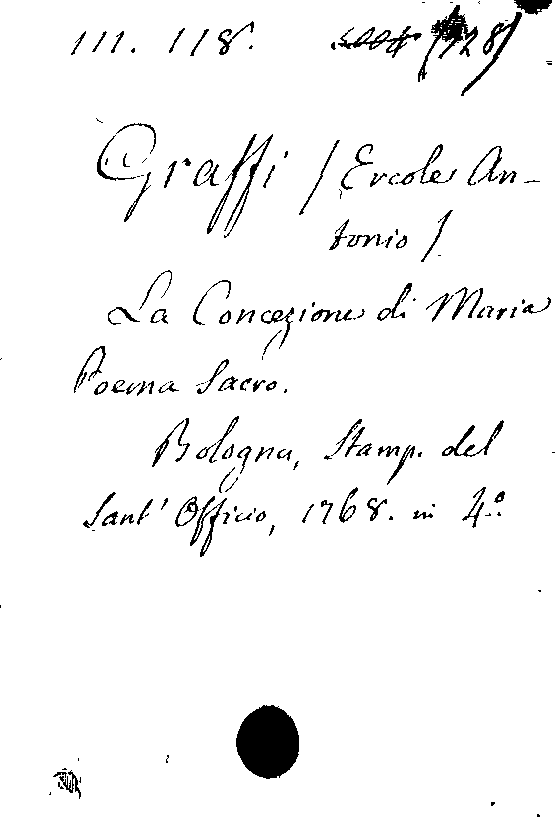 III. 118.
Graffi / Ercole An-
tonio /
La Concezione di Maria
Poema Sacro.
Bologna, Stamp. del
Sant' Officio, 1768. in 4.o